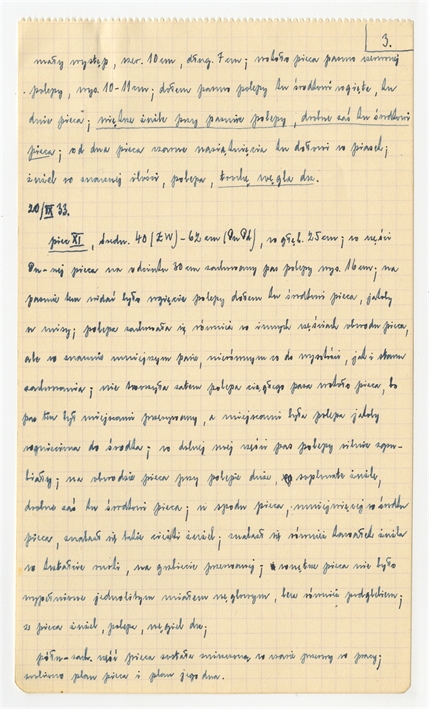 3.
mały występ, szer. 10 cm, dług. 7 cm; wokoło pieca pasmo czerwonej
polepy, wys. 10-11 cm; dołem pasmo polepy ku środkowi wygięte, ku
dnie pieca; większe żużle przy paśmie polepy, drobne zaś ku środkowi
pieca; od dna pieca czarne nasiąknięcia ku dołowi w piasek;
żużel w znacznej ilości, polepa, trochę węgla drz.
20/IX 33.
piec XI, średn. 40 (ZW) - 62 cm (Pn Pd), w głęb. 25 cm; w części
Pn-nej pieca na odcinku 30 cm zachowany pas polepy wys. 16 cm; na
paśmie tem widać było wygięcie polepy dołem ku środkowi pieca, jakoby
w misy; polepa zachowała się również w innych częściach obwodu pieca,
ale w znacznie mniejszym pasie, nierównym co do wysokości, jak i stanu
zachowania; nie tworzyła zatem polepa ciągłego pasa wokoło pieca, bo
pas ten był miejscami przerwany, a miejscami była polepa jakoby
wgnieciona do środka; w dolnej swej części pas polepy silnie
na obwodzie pieca przy polepie duże, soplowate żużle,
drobne zaś ku środkowi pieca; w spodu pieca, mniejwięcej w środku
pieca, znalazł się także cięższy żużel; znalazł się również kawałek żużla
w kształcie rurki, na grzbiecie przerwanej; wnętrze pieca nie było
wypełnione jednolitym miałem węglowym, lecz również podglebiem;
z pieca żużel, polepa, węgiel drz;
półn.-zach. część pieca została zniszczona w czasie przerwy w pracy;
zrobiono plan pieca i plan jego dna.